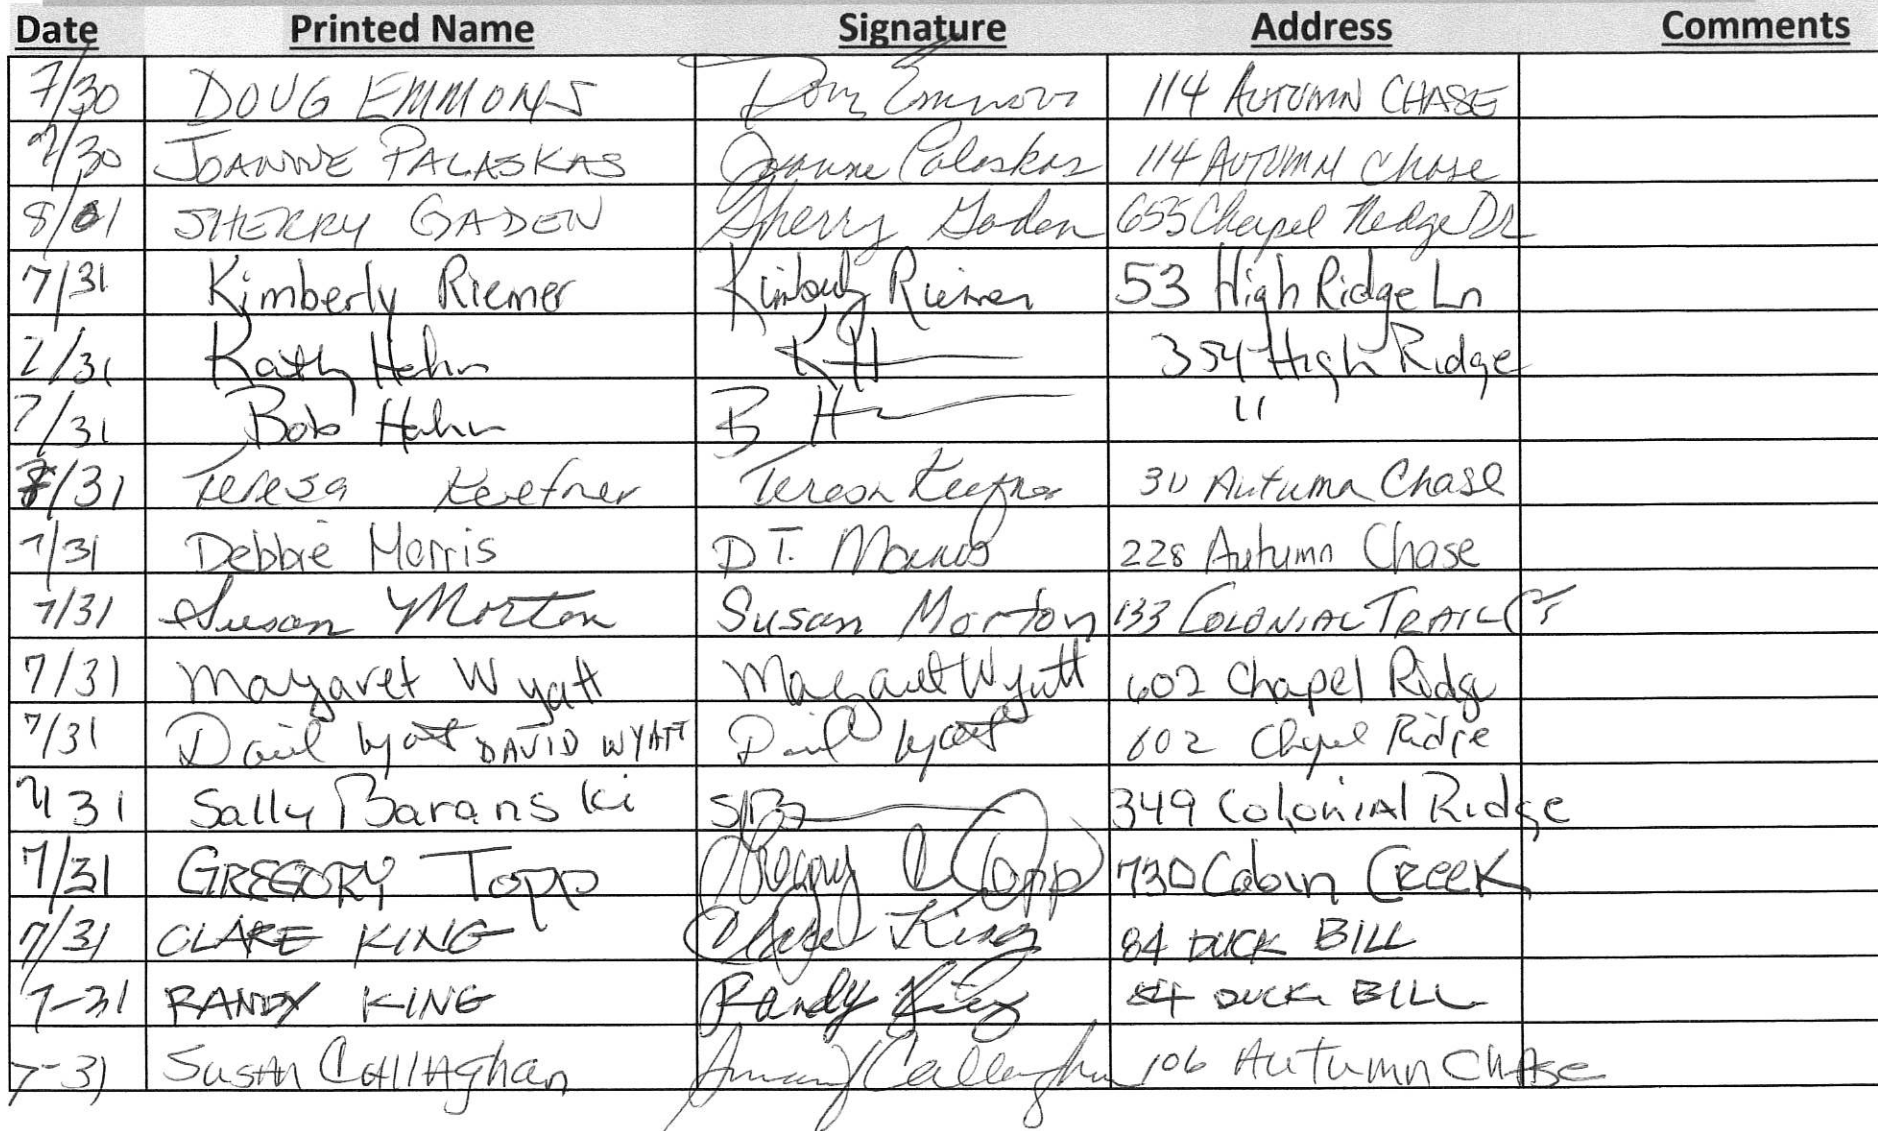 Date Printed Name Signature Address Comments
7/30 DOUG EMMONS Doug Emmons 114 AUTUMN CHASE
7/30 JOANNE PALASKAS Joanne Palaskas 114 AUTUMN Chase
8/01 SHERRY GADEN Sherry Gaden 655 Chapel Redge DR
7/31 Kimberly Riemer Kimberly Riemer 53 High Ridge Ln
7/31 Kathy Hahn KH 354 High Ridge
7/31 Bob Hahn B H 11
7/31 Teresa Keefner Teresa Keefner 30 Autumn Chase
7/31 Debbie Morris D T. Morris 228 Autumn Chase
7/31 Susan Morton Susan Morton 133 COLONIAL TRAIL CT
7/31 Margaret Wyatt Margaret Wyatt 602 Chapel Ridge
7/31 David Wyatt DAVID WYATT David Wyatt 602 Chapel Ridge
7/31 Sally Baranski SB 349 Colonial Ridge
7/31 GREGORY Topp Gregory Topp 730 Cabin Creek
7/31 CLARE KING Clare King 84 DUCK BILL
7-31 RANDY KING Randy King 84 DUCK BILL
7-31 Susan Callaghan Callaghan 106 Autumn Chase